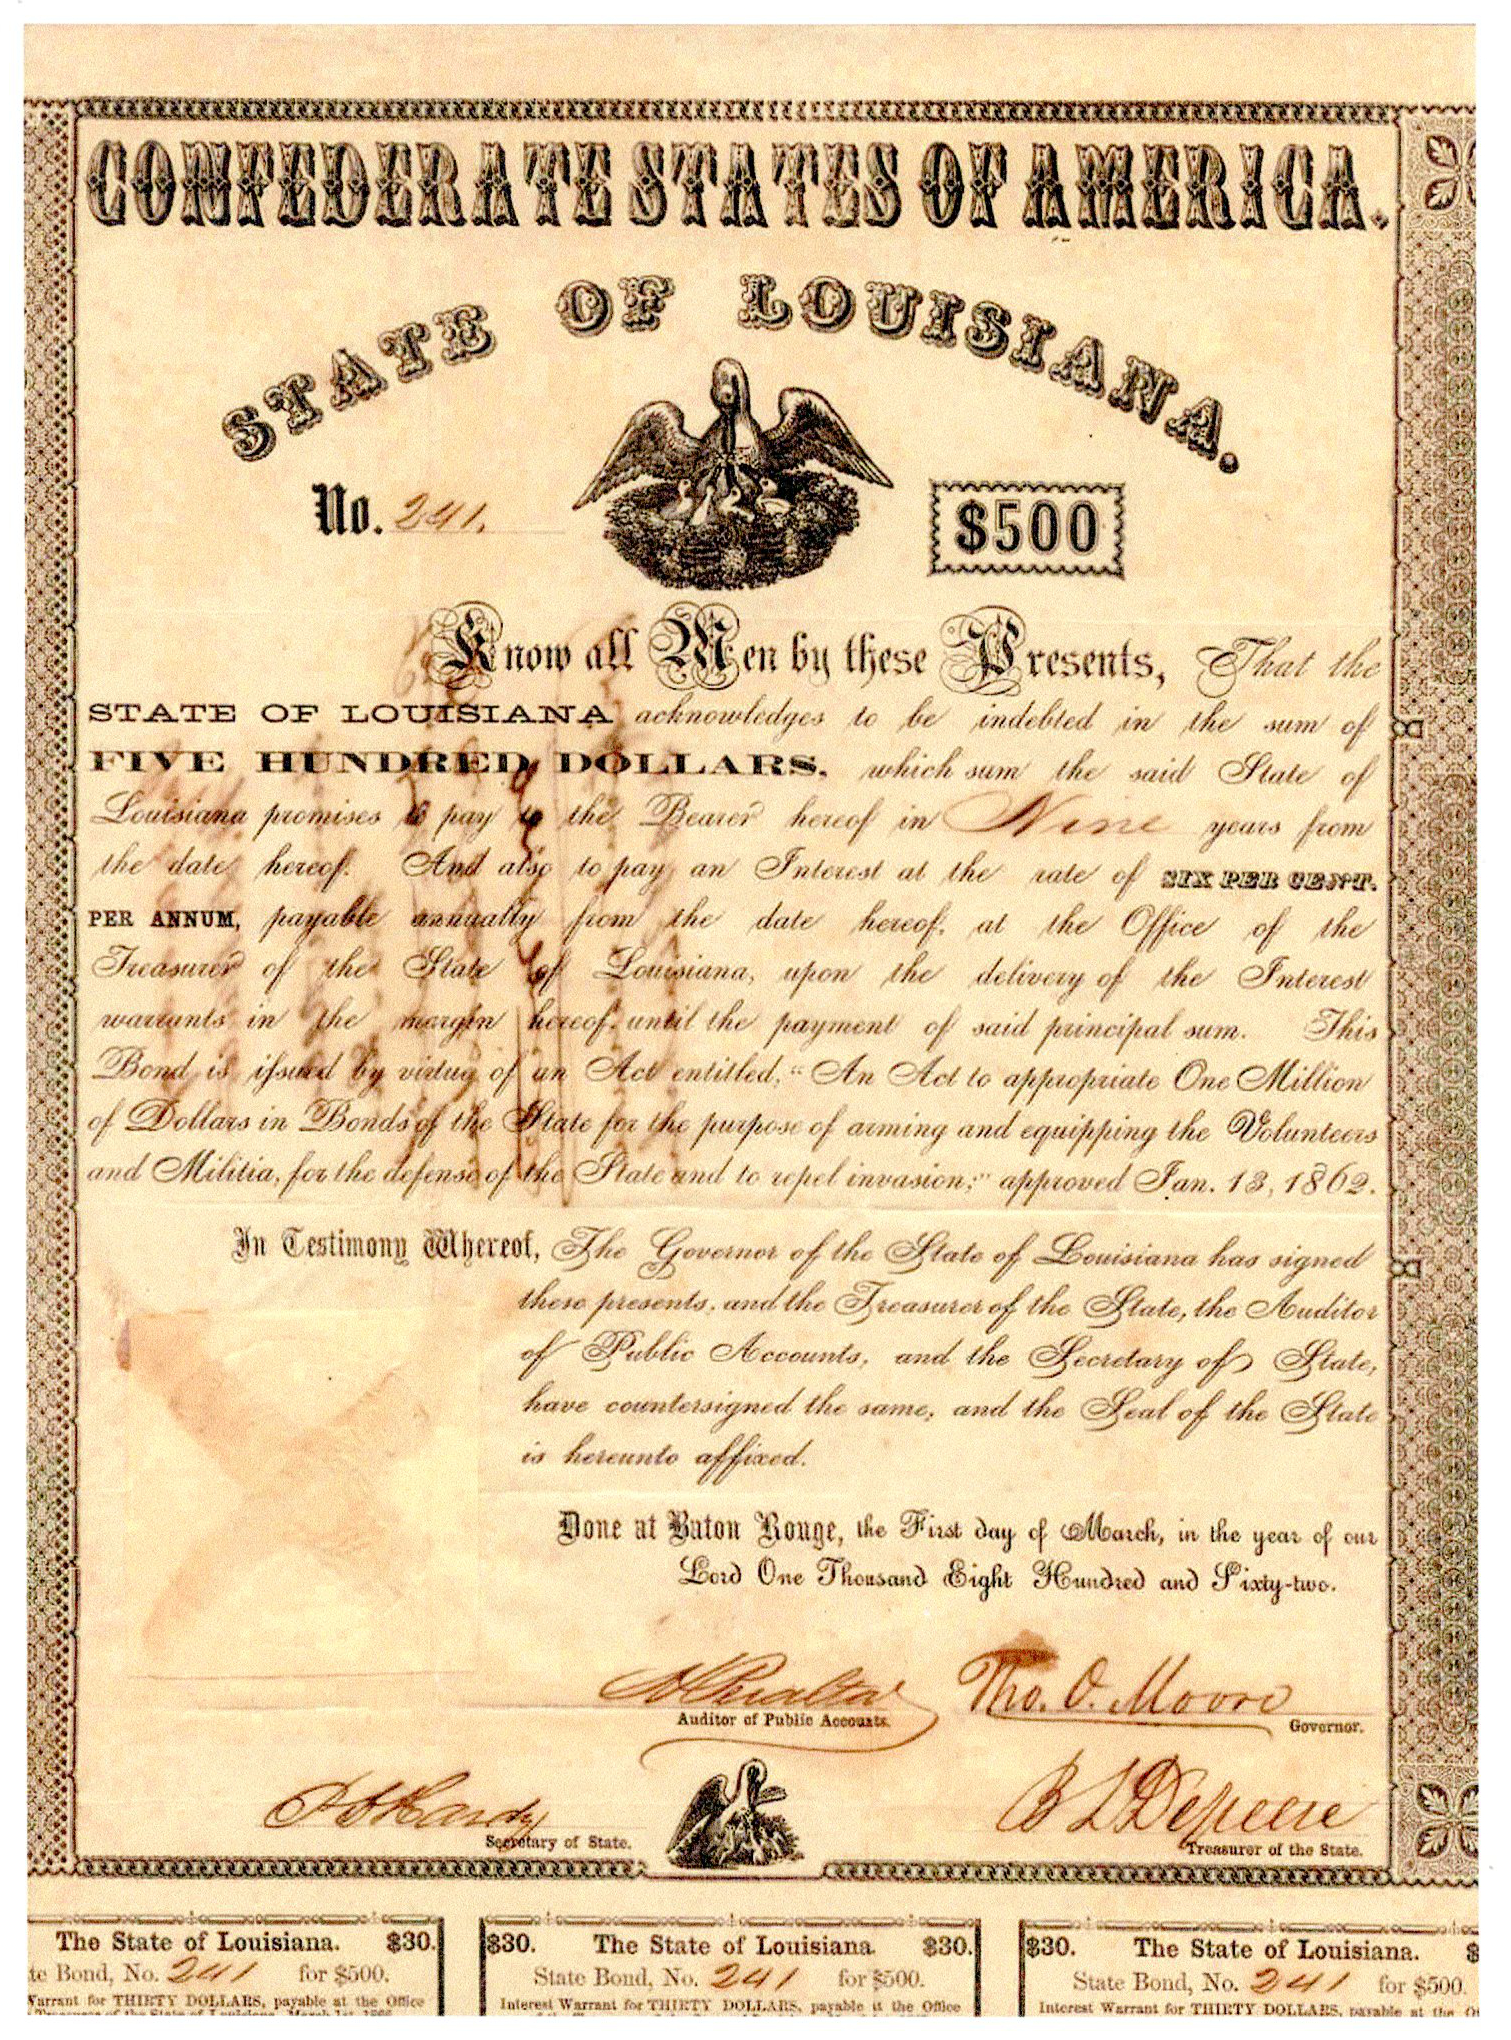 CONFEDERATE STATES OF AMERICA.
STATE OF LOUISIANA.
No. 241.
$500
Know all Men by these Presents, That the
STATE OF LOUISIANA acknowledges to be indebted in the sum of
FIVE HUNDRED DOLLARS, which sum the said State of
Louisiana promises to pay to the Bearer hereof in Nine years from
the date hereof. And also to pay an Interest at the rate of SIX PER CENT.
PER ANNUM, payable annually from the date hereof, at the Office of the
Treasurer of the State of Louisiana, upon the delivery of the Interest
warrants in the margin hereof, until the payment of said principal sum. This
Bond is issued by virtue of an Act entitled, "An Act to appropriate One Million
of Dollars in Bonds of the State for the purpose of arming and equipping the Volunteers
and Militia, for the defense of the State and to repel invasion;" approved Jan. 13, 1862.
In Testimony Whereof, The Governor of the State of Louisiana has signed
these presents, and the Treasurer of the State, the Auditor
of Public Accounts, and the Secretary of State,
have countersigned the same, and the Seal of the State
is hereunto affixed.
Done at Baton Rouge, the First day of March, in the year of our
Lord One Thousand Eight Hundred and Sixty-two.
Tho. O. Moore
Auditor of Public Accounts.
Governor.
Hardy
B L Defreese
Secretary of State.
Treasurer of the State.
The State of Louisiana. $30.
te Bond, No. 241 for $500.
Warrant for THIRTY DOLLARS, payable at the Office
$30. The State of Louisiana. $30.
State Bond, No. 241 for $500.
Interest Warrant for THIRTY DOLLARS, payable at the Office
$30. The State of Louisiana. $
State Bond, No. 241 for $500.
Interest Warrant for THIRTY DOLLARS, payable at the O